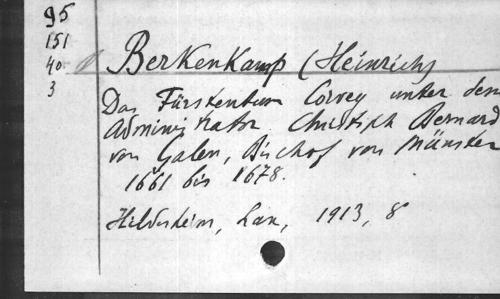 95
151
40
3
Berkenkamp (Heinrich)
Das Fürstentum Corvey unter dem
Administrator Christoph Bernard
von Galen, Bischof von Münster
1661 bis 1678.
Hildesheim, Lax, 1913, 8